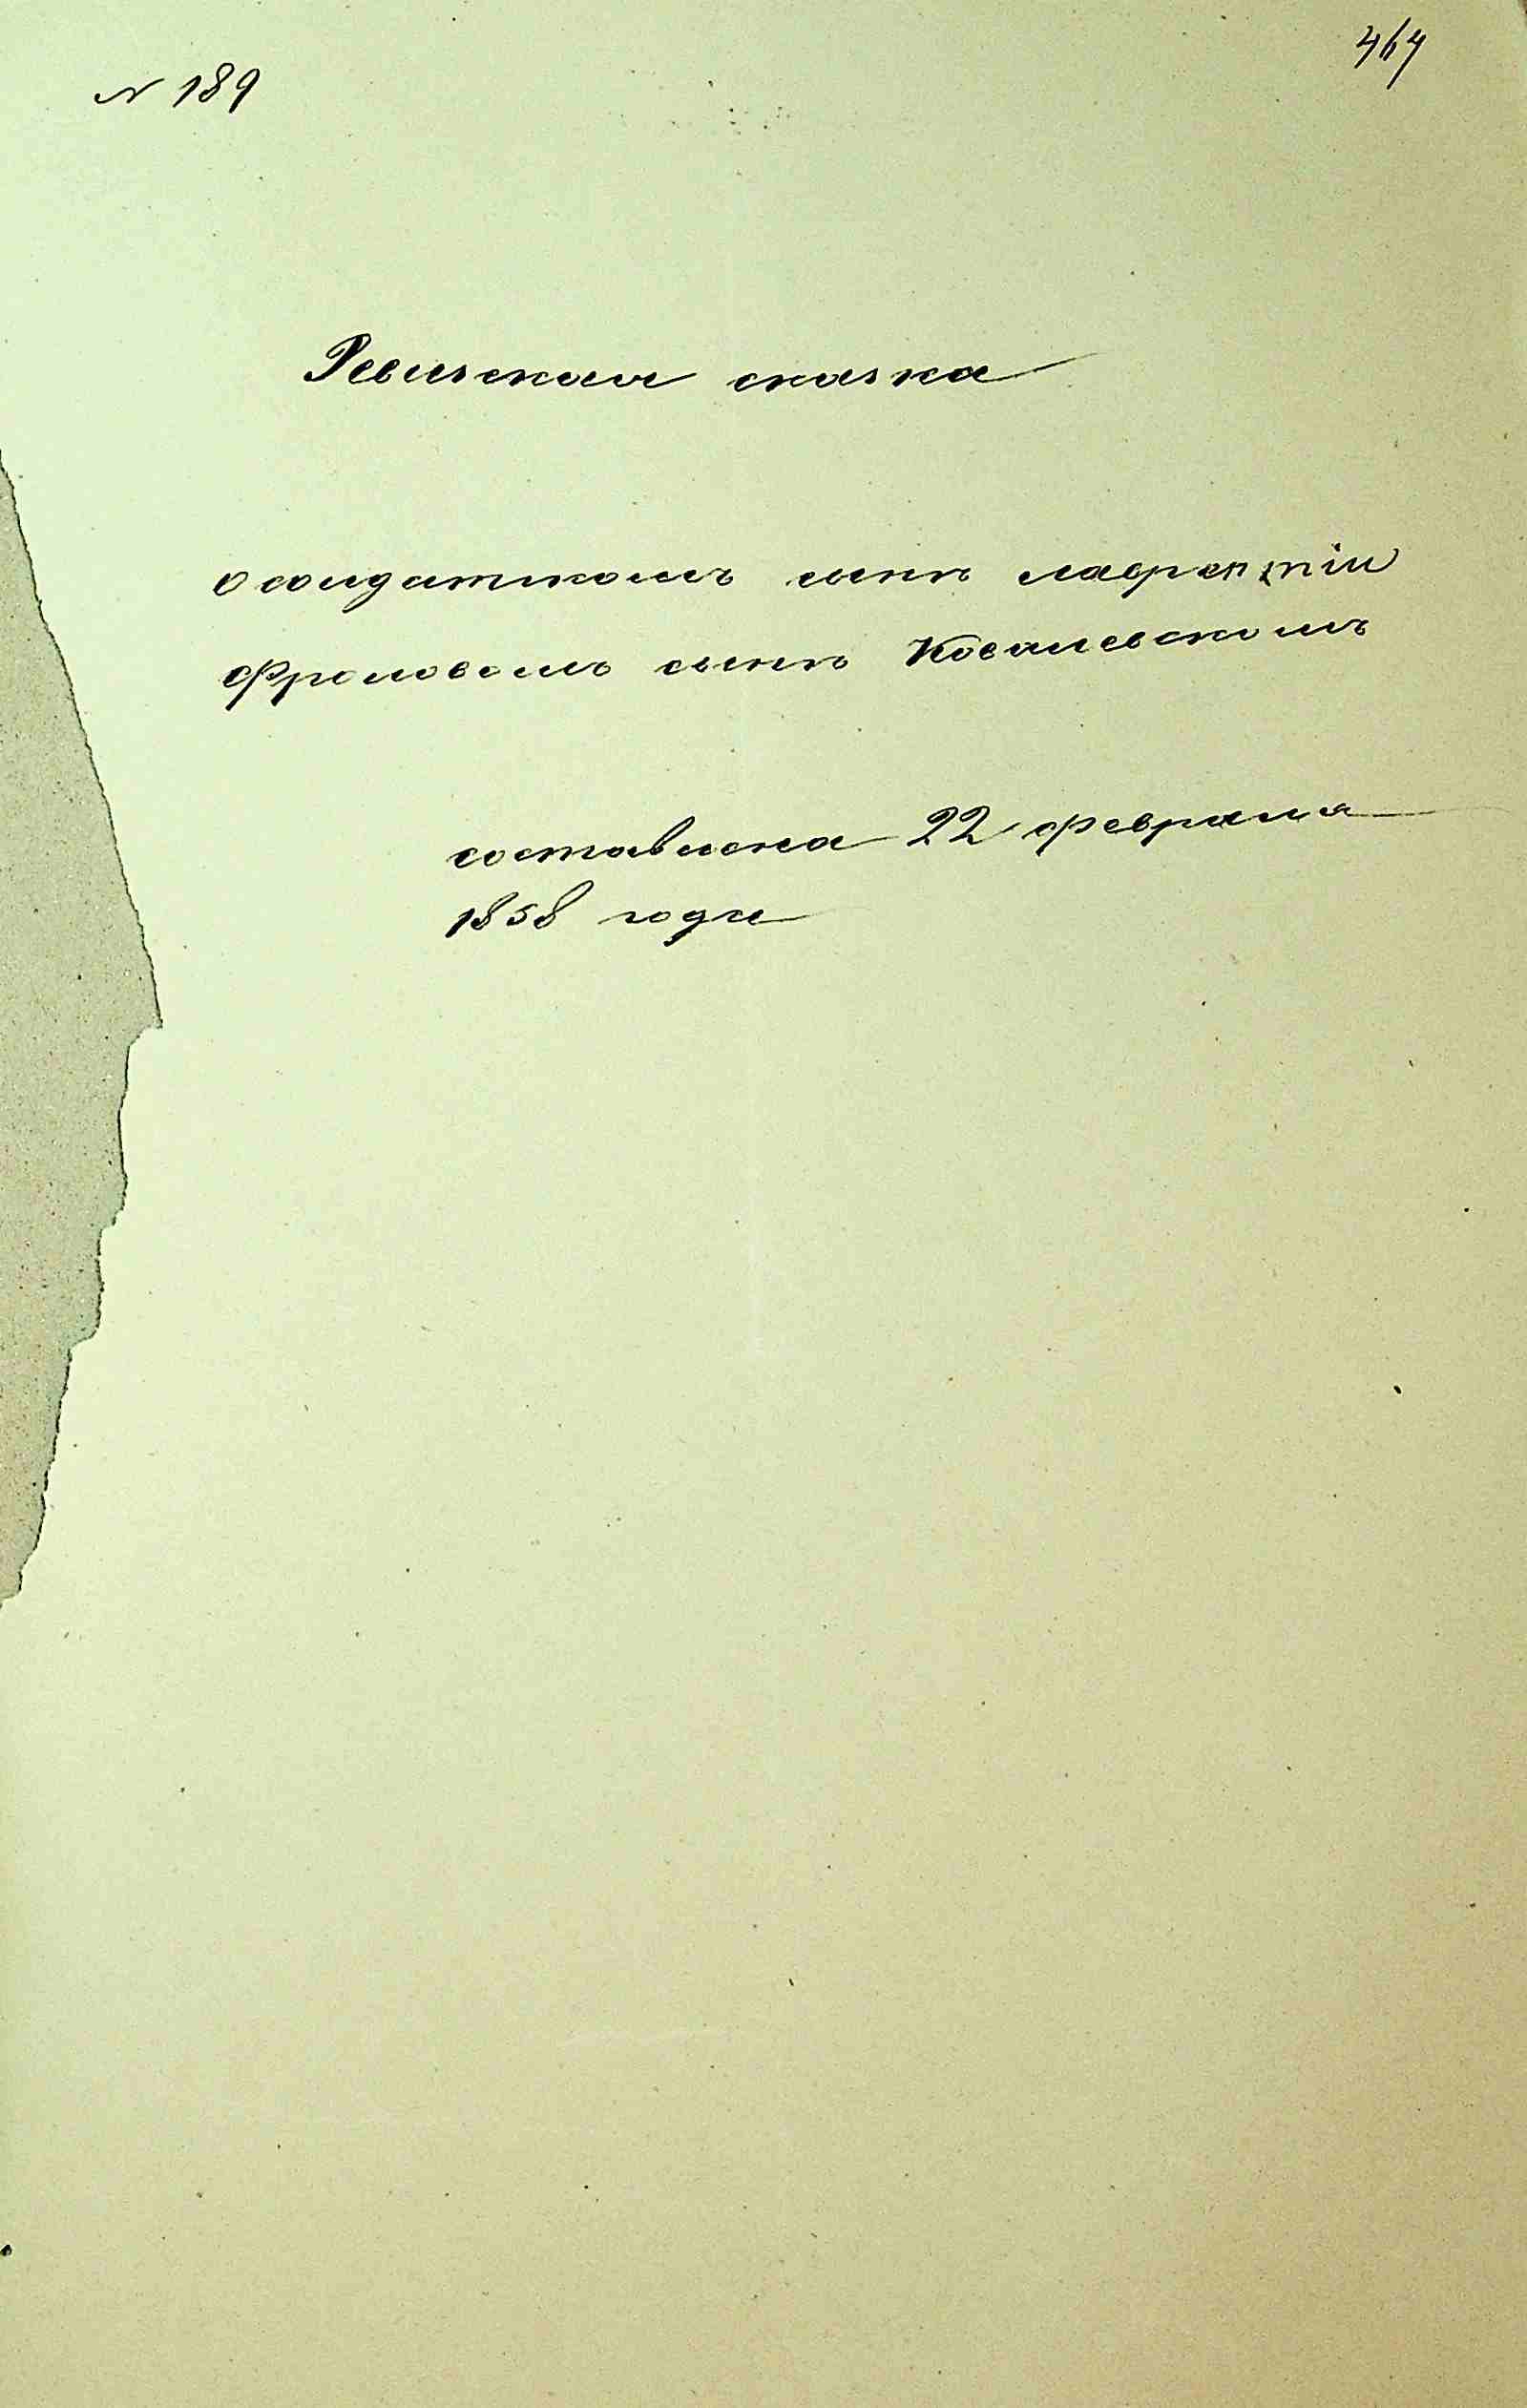 464
№ 189
Ревизская сказка
о солдатскомъ сынѣ лаврентіи
Фроловомъ сынѣ Ковалевскомъ
составлена 22 февраля
1858 года